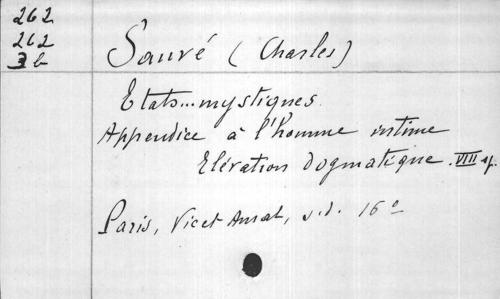 262
262
3 b
Sauvé (Charles)
Etats...mystiques.
Appendice à l'homme intime
Elévation dogmatique. VIII
Paris, Vic et Amat, s.d. 16°